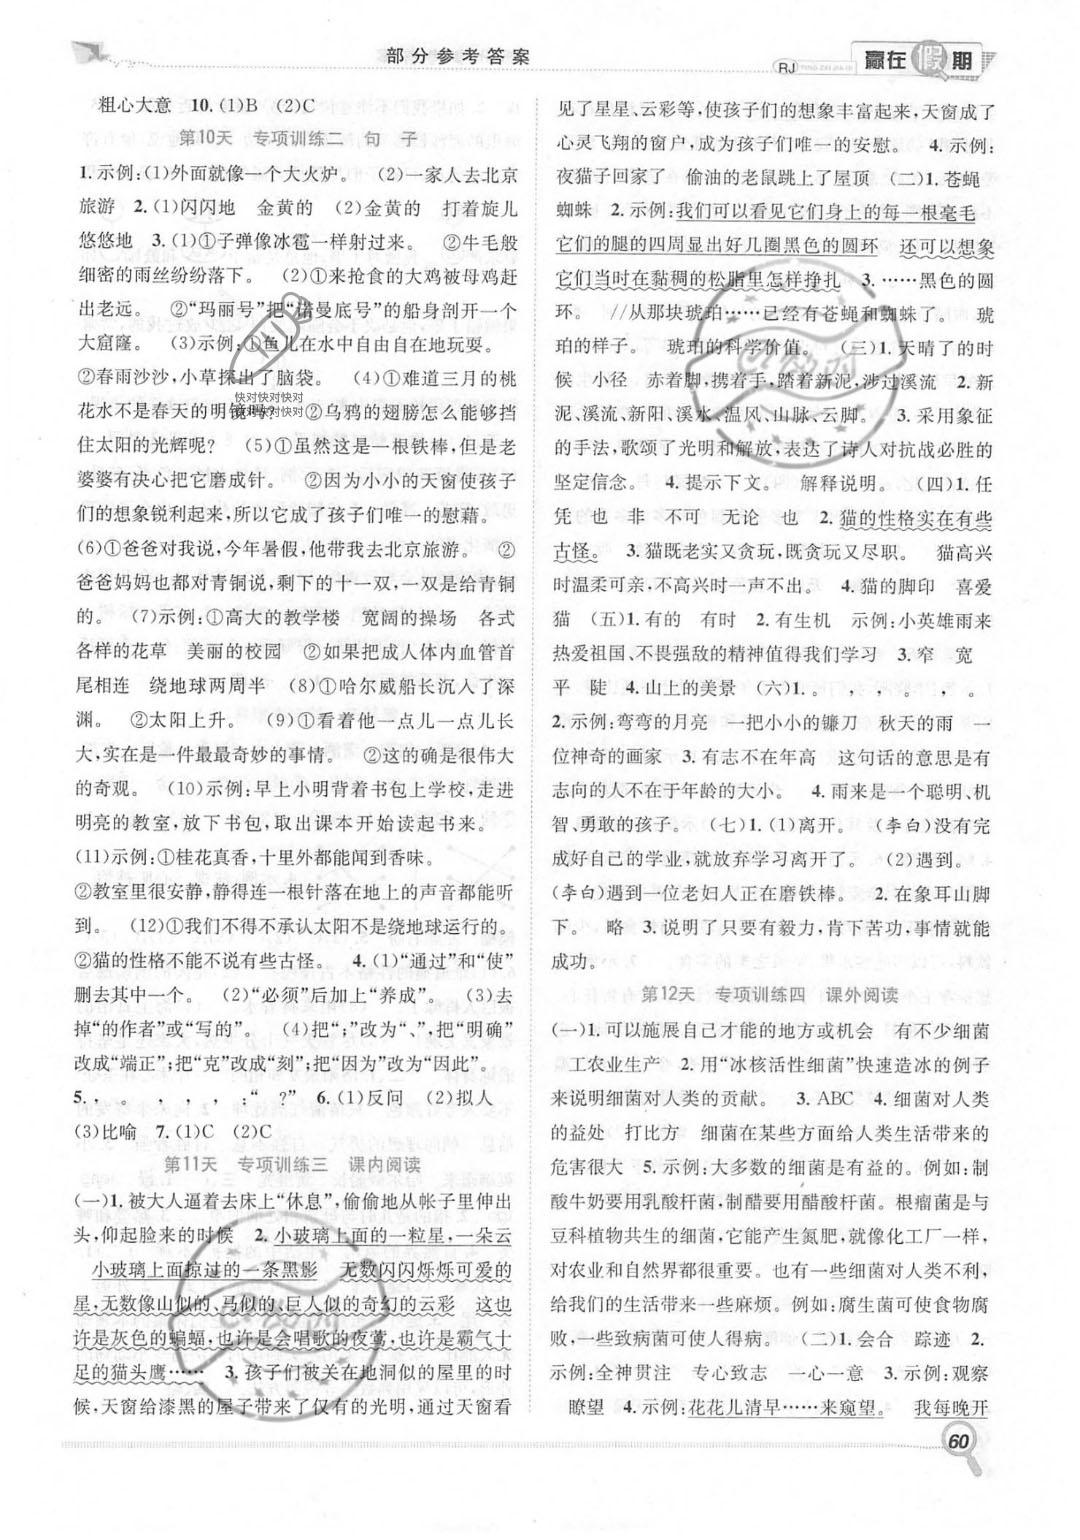 部分参考答案
RJ
赢在假期
粗心大意　10.(1)B　(2)C
第10天　专项训练二　句　子
1.示例:(1)外面就像一个大火炉。　(2)一家人去北京
旅游　2.(1)闪闪地　金黄的　(2)金黄的　打着旋儿
悠悠地　3.(1)①子弹像冰雹一样射过来。　②牛毛般
细密的雨丝纷纷落下。　(2)①来抢食的大鸡被母鸡赶
出老远。　②“玛丽号”把“诺曼底号”的船身剖开一个
大窟窿。　(3)示例:①鱼儿在水中自由自在地玩耍。
②春雨沙沙,小草探出了脑袋。　(4)①难道三月的桃
花水不是春天的明镜吗?　②乌鸦的翅膀怎么能够挡
住太阳的光辉呢?　(5)①虽然这是一根铁棒,但是老
婆婆有决心把它磨成针。　②因为小小的天窗使孩子
们的想象锐利起来,所以它成了孩子们唯一的慰藉。
(6)①爸爸对我说,今年暑假,他带我去北京旅游。　②
爸爸妈妈也都对青铜说,剩下的十一双,一双是给青铜
的。　(7)示例:①高大的教学楼　宽阔的操场　各式
各样的花草　美丽的校园　②如果把成人体内血管首
尾相连　绕地球两周半　(8)①哈尔威船长沉入了深
渊。　②太阳上升。　(9)①看着他一点儿一点儿长
大,实在是一件最最奇妙的事情。　②这的确是很伟大
的奇观。　(10)示例:早上小明背着书包上学校,走进
明亮的教室,放下书包,取出课本开始读起书来。
(11)示例:①桂花真香,十里外都能闻到香味。
②教室里很安静,静得连一根针落在地上的声音都能听
到。　(12)①我们不得不承认太阳不是绕地球运行的。
②猫的性格不能不说有些古怪。　4.(1)“通过”和“使”
删去其中一个。　(2)“必须”后加上“养成”。　(3)去
掉“的作者”或“写的”。　(4)把“;”改为“、”,把“明确”
改成“端正”;把“克”改成“刻”;把“因为”改为“因此”。
5.，　。　，　，　，　；“　？”　6.(1)反问　(2)拟人
(3)比喻　7.(1)C　(2)C
第11天　专项训练三　课内阅读
(一)1.被大人逼着去床上“休息”,偷偷地从帐子里伸出
头,仰起脸来的时候　2.小玻璃上面的一粒星,一朵云
小玻璃上面掠过的一条黑影　无数闪闪烁烁可爱的
星,无数像山似的、马似的、巨人似的奇幻的云彩　这也
许是灰色的蝙蝠,也许是会唱歌的夜莺,也许是霸气十
足的猫头鹰……　3.孩子们被关在地洞似的屋里的时
候,天窗给漆黑的屋子带来了仅有的光明,通过天窗看
见了星星、云彩等,使孩子们的想象丰富起来,天窗成了
心灵飞翔的窗户,成为孩子们唯一的安慰。　4.示例:
夜猫子回家了　偷油的老鼠跳上了屋顶　(二)1.苍蝇
蜘蛛　2.示例:我们可以看见它们身上的每一根毫毛
它们的腿的四周显出好几圈黑色的圆环　还可以想象
它们当时在黏稠的松脂里怎样挣扎　3.……黑色的圆
环。　//从那块琥珀……已经有苍蝇和蜘蛛了。　琥
珀的样子。　琥珀的科学价值。　(三)1.天晴了的时
候　小径　赤着脚,携着手,踏着新泥,涉过溪流　2.新
泥、溪流、新阳、溪水、温风、山脉、云脚。　3.采用象征
的手法,歌颂了光明和解放,表达了诗人对抗战必胜的
坚定信念。　4.提示下文。　解释说明。　(四)1.任
凭　也　非　不可　无论　也　2.猫的性格实在有些
古怪。　3.猫既老实又贪玩,既贪玩又尽职。　猫高兴
时温柔可亲,不高兴时一声不出。　4.猫的脚印　喜爱
猫　(五)1.有的　有时　2.有生机　示例:小英雄雨来
热爱祖国、不畏强敌的精神值得我们学习　3.窄　宽
平　陡　4.山上的美景　(六)1.。　，　，　。　，　。
2.示例:弯弯的月亮　一把小小的镰刀　秋天的雨　一
位神奇的画家　3.有志不在年高　这句话的意思是有
志向的人不在于年龄的大小。　4.雨来是一个聪明、机
智、勇敢的孩子。　(七)1.(1)离开。　(李白)没有完
成好自己的学业,就放弃学习离开了。　(2)遇到。
(李白)遇到一位老妇人正在磨铁棒。　2.在象耳山脚
下。　略　3.说明了只要有毅力,肯下苦功,事情就能
成功。
第12天　专项训练四　课外阅读
(一)1.可以施展自己才能的地方或机会　有不少细菌
工农业生产　2.用“冰核活性细菌”快速造冰的例子
来说明细菌对人类的贡献。　3.ABC　4.细菌对人类
的益处　打比方　细菌在某些方面给人类生活带来的
危害很大　5.示例:大多数的细菌是有益的。例如:制
酸牛奶要用乳酸杆菌,制醋要用醋酸杆菌。根瘤菌是与
豆科植物共生的细菌,它能产生氮肥,就像化工厂一样,
对农业和自然界都很重要。也有一些细菌对人类不利,
给我们的生活带来一些麻烦。例如:腐生菌可使食物腐
败,一些致病菌可使人得病。　(二)1.会合　踪迹　2.
示例:全神贯注　专心致志　一心一意　3.示例:观察
瞭望　4.示例:花花儿清早……来窥望。　我每晚开
60
快对快对快对
快对快对